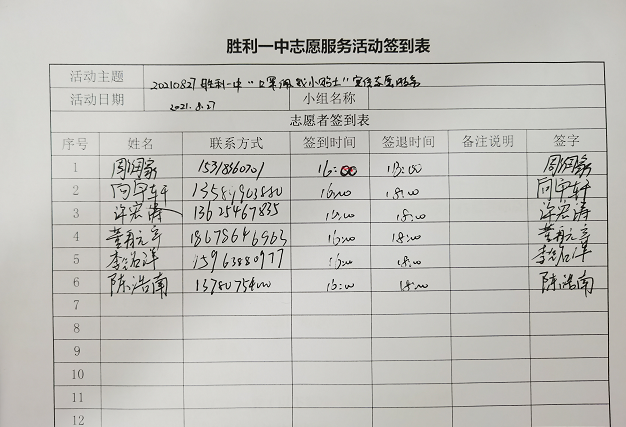 胜利一中志愿服务活动签到表
活动主题 20210827胜利一中"文明佩我小骑士"宣传志愿服务
活动日期 2021.8.27 小组名称
志愿者签到表
序号 姓名 联系方式 签到时间 签退时间 备注说明 签字
1 16:00 18:00
2 16:00 18:00
3 许宏涛 13625467835 16:00 18:00 许宏涛
4 18678646963 16:00 18:00
5 李铭洋 15963880977 16:00 18:00 李铭洋
6 陈浩南 16:00 18:00 陈浩南
7
8
9
10
11
12